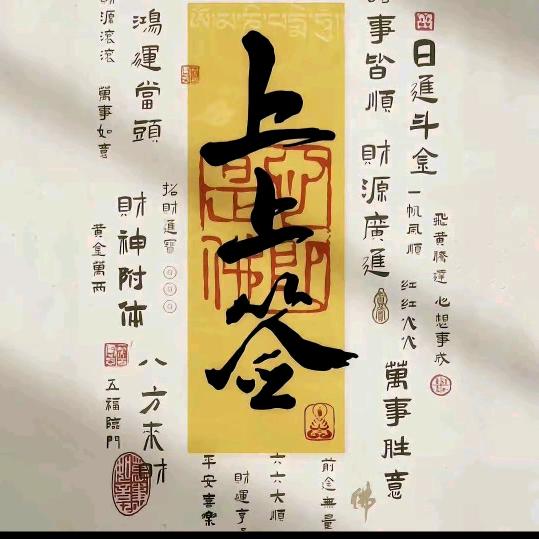 飛黄騰達
心想事成
日進斗金
一帆風順
紅紅火火
事皆順
財源廣進
萬事胜意
上上签
心即是佛
鴻運當頭
財源滾滾
萬事如意
招財進寶
財神附体
黄金萬两
八方來財
五福臨門
前途無量
六六大順
財運亨
平安喜樂
佛